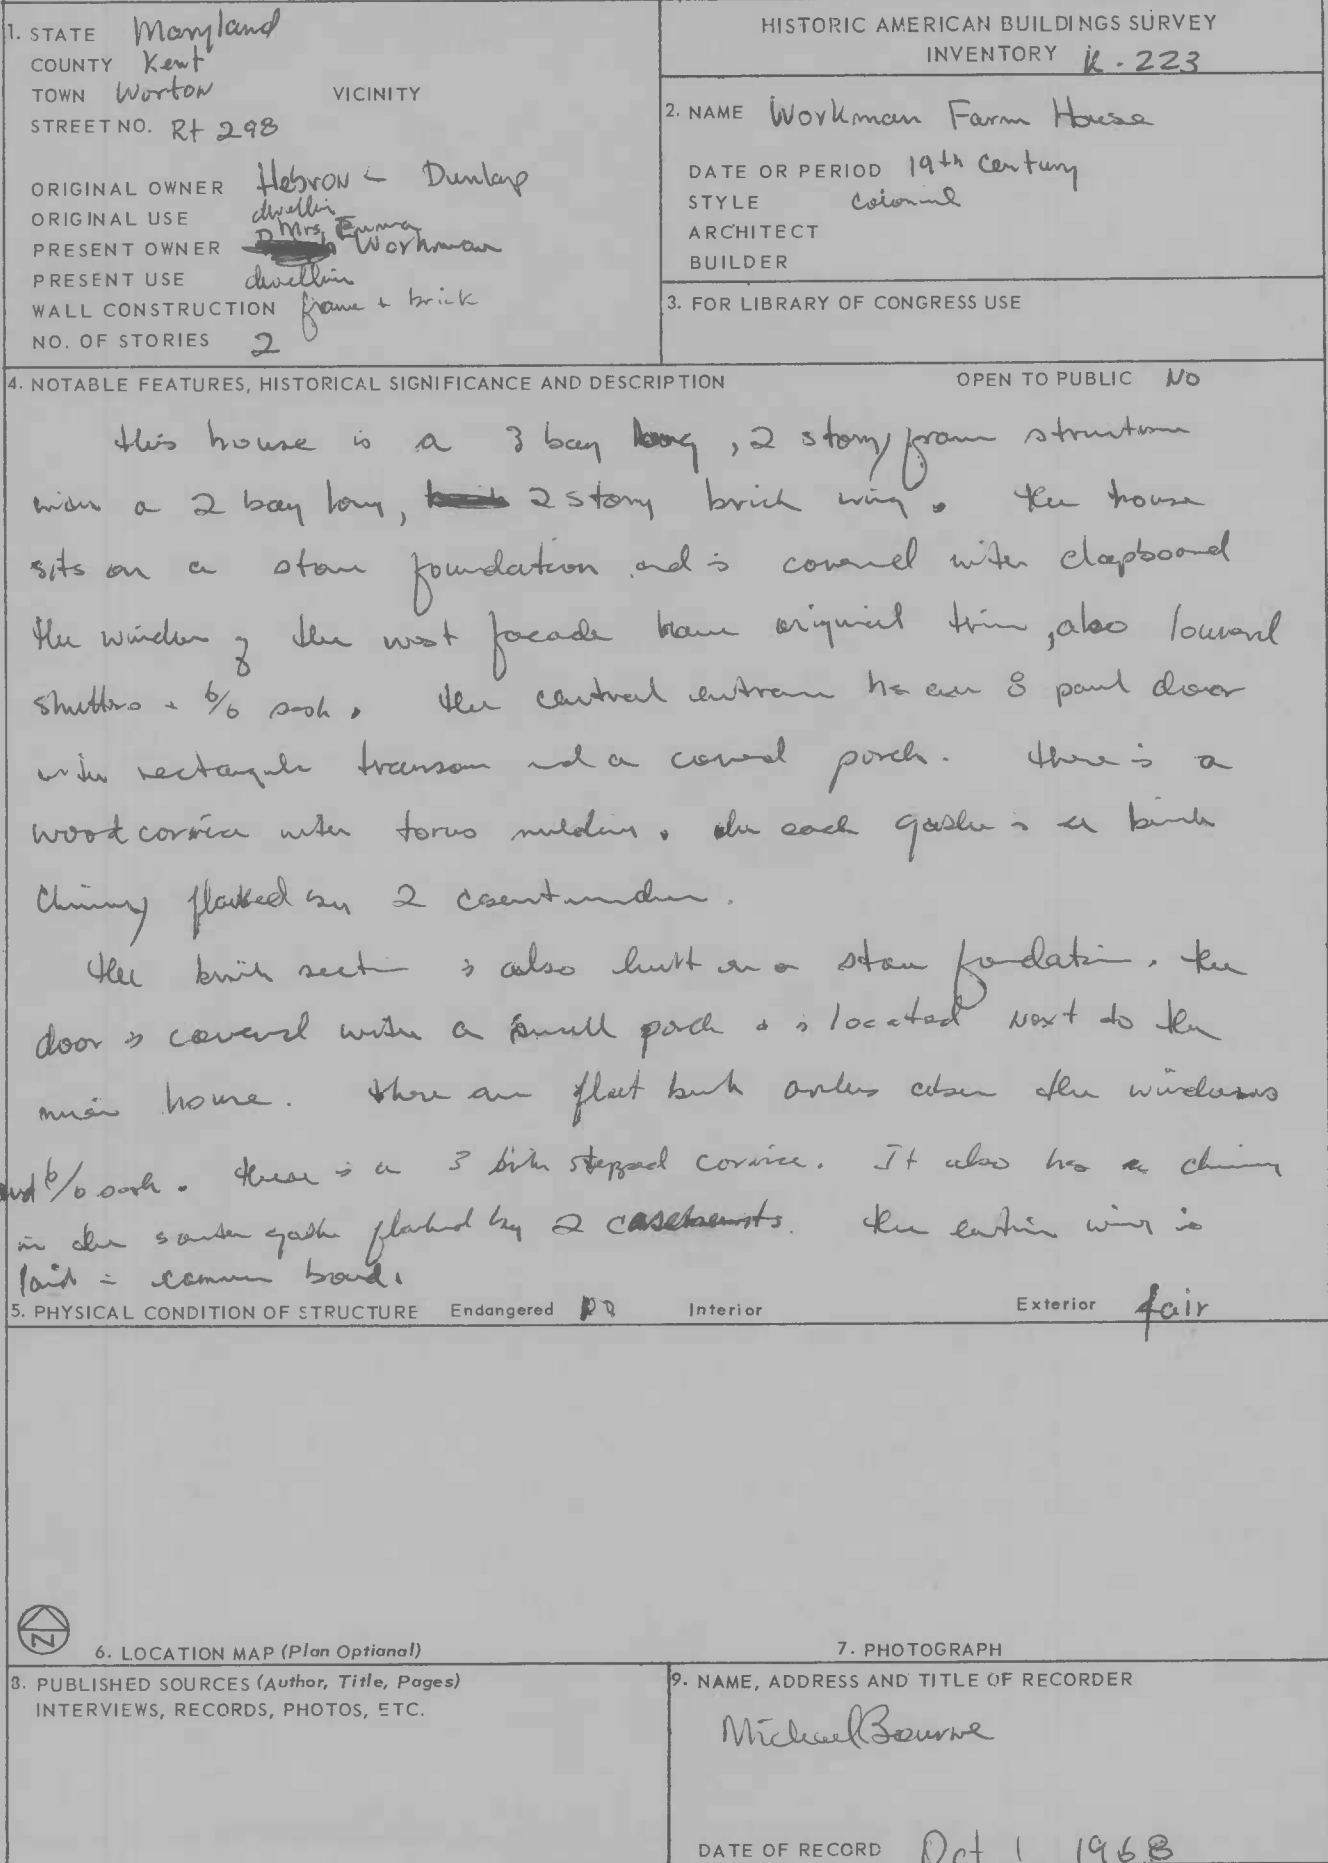 1. STATE Maryland
COUNTY Kent
TOWN Worton VICINITY
STREET NO. Rt 298
ORIGINAL OWNER Hebron - Dunlap
ORIGINAL USE dwellin
Mrs. Emma
PRESENT OWNER Workman
PRESENT USE dwellin
WALL CONSTRUCTION frame + brick
NO. OF STORIES 2
HISTORIC AMERICAN BUILDINGS SURVEY
INVENTORY K-223
2. NAME Workman Farm House
DATE OR PERIOD 19th Century
STYLE Colonial
ARCHITECT
BUILDER
3. FOR LIBRARY OF CONGRESS USE
4. NOTABLE FEATURES, HISTORICAL SIGNIFICANCE AND DESCRIPTION OPEN TO PUBLIC NO
this house is a 3 bay long, 2 story frame structure
with a 2 bay long, 2 story brick wing. the house
sits on a stone foundation and is covered with clapboard
the windows of the west facade have original trim, also louvered
shutters + 6/6 sash. the central entrance has an 8 panel door
with rectangular transom and a covered porch. there is a
wood cornice with torus molding. in each gable is a brick
chimney flanked by 2 casement windows.
the brick section is also built on a stone foundation. the
door is covered with a small porch + is located next to the
main house. there are flat brick arches above the windows
and 6/6 sash. there is a 3 brick stepped cornice. It also has a chimney
in the south gable flanked by 2 casements. the entire wing is
laid in common bond.
5. PHYSICAL CONDITION OF STRUCTURE Endangered no Interior Exterior fair
N
6. LOCATION MAP (Plan Optional)
7. PHOTOGRAPH
8. PUBLISHED SOURCES (Author, Title, Pages)
INTERVIEWS, RECORDS, PHOTOS, ETC.
9. NAME, ADDRESS AND TITLE OF RECORDER
Michael Bourne
DATE OF RECORD Oct 1 1968